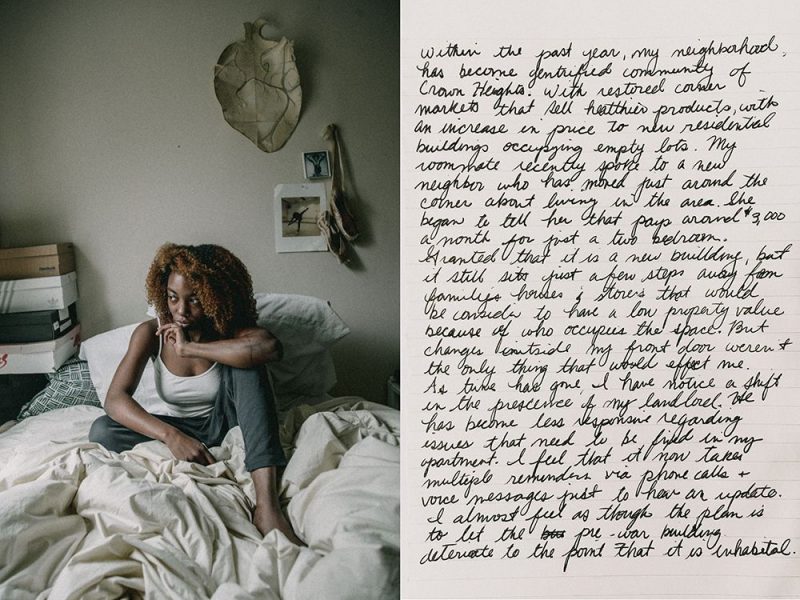 Within the past year, my neighborhood,
has become gentrified community of
Crown Heights. With restored corner
markets that sell healthier products, with
an increase in price to new residential
buildings occupying empty lots. My
roommate recently spoke to a new
neighbor who has moved just around the
corner about living in the area. She
began to tell her that pays around $3,000
a month for just a two bedroom.
Granted that it is a new building, but
it still sits just a few steps away from
families houses & stores that would
be consider to have a low property value
because of who occupies the space. But
changes outside my front door weren't
the only thing that would effect me.
As time has gone, I have notice a shift
in the prescence of my landlord. He
has become less responsive regarding
issues that need to be fixed in my
apartment. I feel that it now takes
multiple reminders via phone calls +
voice messages just to hear an update.
I almost feel as though the plan is
to let the pre-war building
deteriate to the point that it is inhabital.